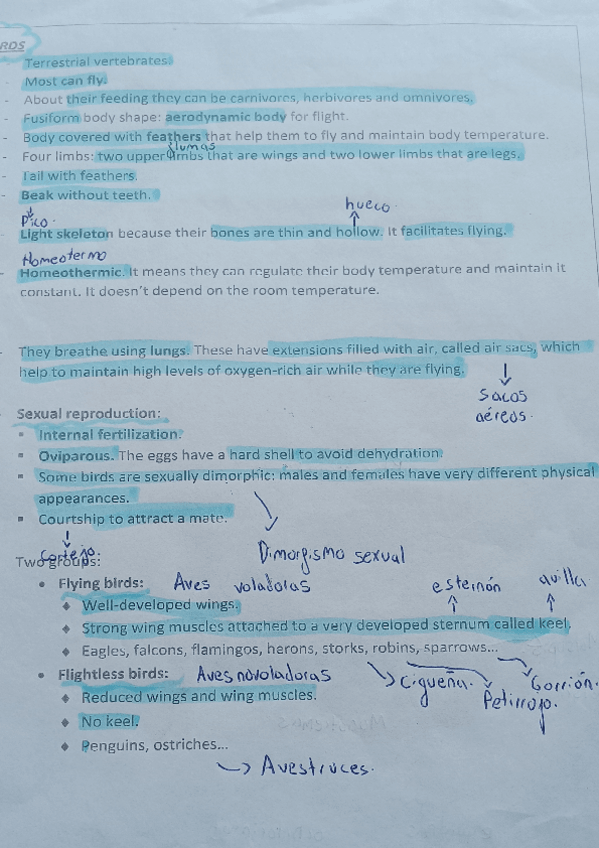 RDS
Terrestrial vertebrates.
- Most can fly.
- About their feeding they can be carnivores, herbivores and omnivores.
- Fusiform body shape: aerodynamic body for flight.
- Body covered with feathers that help them to fly and maintain body temperature.
plumas
- Four limbs: two upper limbs that are wings and two lower limbs that are legs.
- Tail with feathers.
- Beak without teeth.
Pico. hueco.
- Light skeleton because their bones are thin and hollow. It facilitates flying.
Homeotermo
- Homeothermic. It means they can regulate their body temperature and maintain it
constant. It doesn't depend on the room temperature.
- They breathe using lungs. These have extensions filled with air, called air sacs, which
help to maintain high levels of oxygen-rich air while they are flying.
sacos
aéreos.
Sexual reproduction:
▪ Internal fertilization.
▪ Oviparous. The eggs have a hard shell to avoid dehydration.
▪ Some birds are sexually dimorphic: males and females have very different physical
appearances.
▪ Courtship to attract a mate.
cortejo. Dimorgismo sexual
Two groups:
• Flying birds: Aves voladoras esternón quilla
◆ Well-developed wings.
◆ Strong wing muscles attached to a very developed sternum called keel.
◆ Eagles, falcons, flamingos, herons, storks, robins, sparrows...
• Flightless birds: Aves no voladoras Cigueña. Petirrojo. Gorrión.
◆ Reduced wings and wing muscles.
◆ No keel.
◆ Penguins, ostriches...
Avestruces.